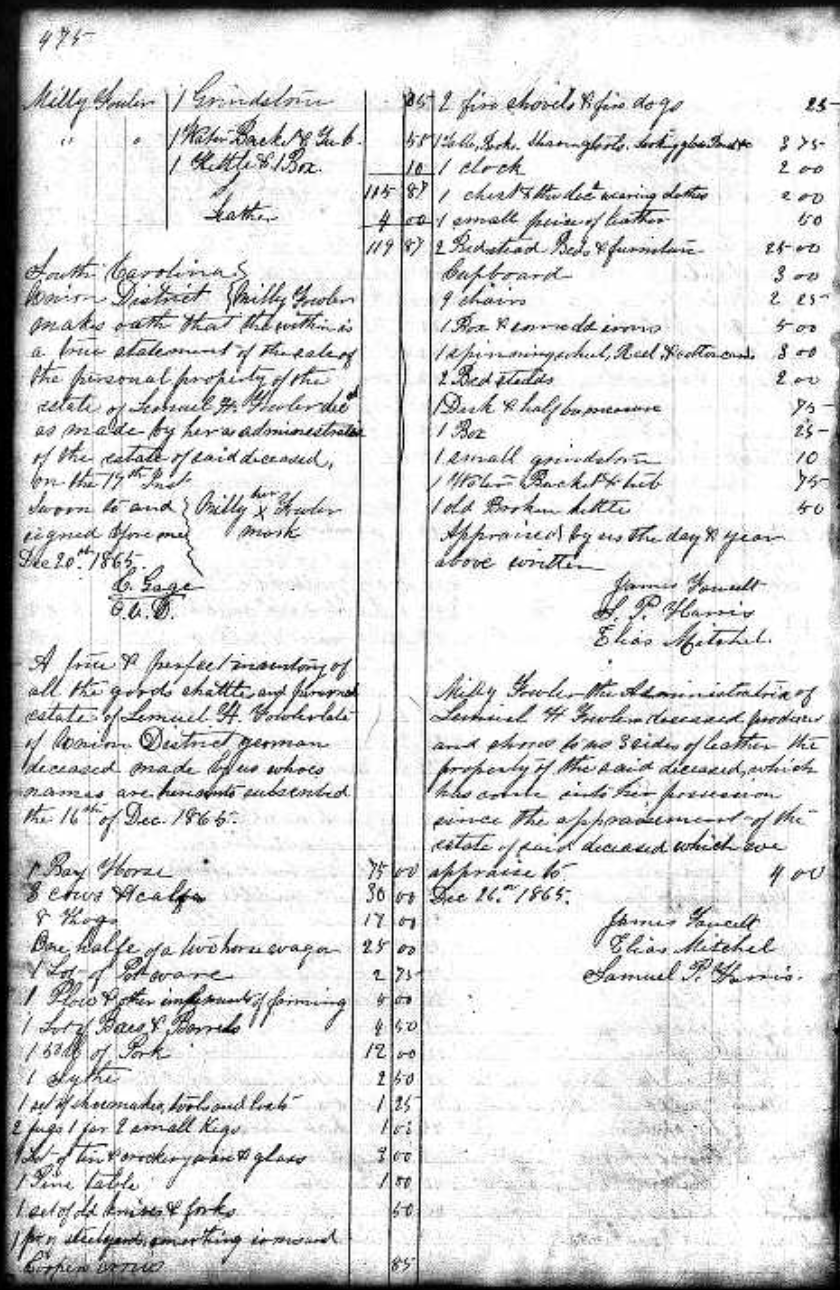 475
Milly Fowler 1 Grindstone 05
" " 1 Water Bucket & Tub. 50
1 Kettle & 1 Box. 10
115 87
Leather 4 00
119 87
South Carolina
Union District Milly Fowler
makes oath that the within is
a true statement of the sale of
the personal property of the
estate of Lemuel H. Fowler decd
as made by her as administratrix
of the estate of said deceased,
on the 19th Inst
Sworn to and Milly her Fowler
signed before me x mark
Dec 20th 1865.
C. Gage
O.U.D.
A true & perfect inventory of
all the goods chattle and personal
estate of Lemuel H. Fowler late
of Union District yeoman
deceased made by us whoes
names are hereunto subscribed
the 16th of Dec. 1865.
1 Bay Horse 75 00
3 cows & calfs 30 00
8 Hogs 17 00
One halfe of a two horse wagon 25 00
1 Lot of Potware 2 75
1 Plow & other implements of farming 5 00
1 Lot of & Barrels 4 50
1 of Pork 12 00
1 Sythe 2 50
1 set of shoemakes tools and lasts 1 25
2 jugs 1 jar 2 small kegs 1 00
1 Lot of tin & crockery & glass 3 00
1 Pine table 1 00
1 set of old knives & forks 50
1 pr steelyards, smoothing irons and
85
2 fire shovels & fire dogs 25
Shaving tools, looking glass 3 75
1 clock 2 00
1 chest & the decd wearing clothes 2 00
1 small peice of leather 50
2 Bedstead Beds & furniture 25 00
Cupboard 3 00
9 chairs 2 25
1 Box & some odd irons 5 00
1 spinning wheel, Reel & cotton cards 3 00
2 Bedstedds 2 00
1 Desk & half bu measure 75
1 Box 25
1 small grindstone 10
1 Water Bucket & tub 75
1 old Broken kettle 50
Appraised by us the day & year
above written
James Fowcett
S. P. Harris
Elias Mitchel.
Milly Fowler the Administratrix of
Lemuel H Fowler deceased produces
and shows to us 3 sides of leather the
property of the said deceased, which
has come into her possession
since the appraisement of the
estate of said deceased which we
appraise to 4 00
Dec 26th 1865.
James Fowcett
Elias Mitchel
Samuel P. Harris.